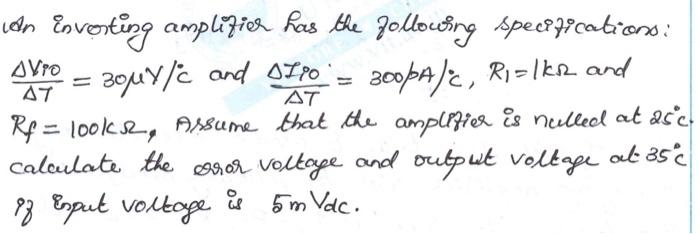 An inverting amplifier has the following specifications:
ΔVio/ΔT = 30μV/°c and ΔIio/ΔT = 300pA/°c, R1 = 1kΩ and
Rf = 100kΩ, Assume that the amplifier is nulled at 25°c.
calculate the error voltage and output voltage at 35°c
if input voltage is 5m Vdc.